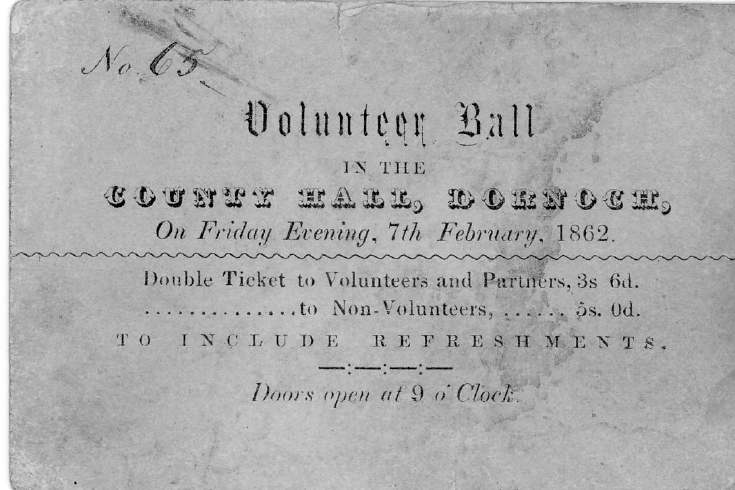 No. 65
Volunteer Ball
IN THE
COUNTY HALL, DORNOCH,
On Friday Evening, 7th February, 1862.
Double Ticket to Volunteers and Partners, 3s 6d.
..............to Non-Volunteers, ...... 5s. 0d.
TO INCLUDE REFRESHMENTS.
Doors open at 9 o'Clock.